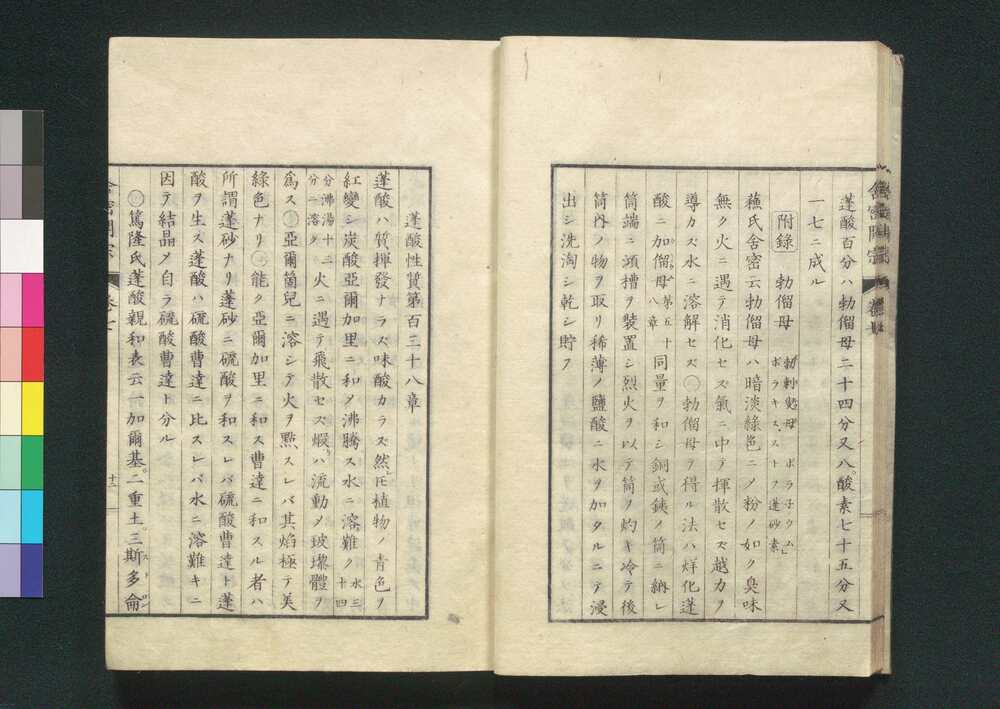 蓬酸百分ハ勃僱母二十四分又八。酸素七十五分又
一七ニ成ル
附錄 勃僱母
蘓氏舍密云勃僱母ハ暗淡綠色ニノ粉ノ如ク臭味
無ク火ニ遇テ消化セズ氣ニ中テ揮散セズ越カヲ
導カズ水ニ溶解セズ○勃僱母ヲ得ル法ハ烊化蓬
酸ニ加僱母 第五十八章 同量ヲ和シ銅或鉄ノ筒ニ納レ
筒端ニ頭槽ヲ裝置シ烈火ヲ以テ筒ヲ灼キ冷テ後
筒內ノ物ヲ取リ稀薄ノ鹽酸ニ水ヲ加タルニテ浸
出シ洗淘シ乾シ貯フ
蓬酸性質第百三十八章
蓬酸ハ質揮發ナラズ味酸カラズ然㆑𪜈植物ノ青色ヲ
紅變シ炭酸亞爾加里ニ和〆沸騰ス水ニ溶難ク 水三十四
分沸湯十二分ニ溶ク 火ニ遇テ飛散セズ煆バ流動〆玻瓈體ヲ
爲ス○亞爾箇兒ニ溶シテ火ヲ點スレバ其焰極テ美
綠色ナリ○能ク亞爾加里ニ和ス曹達ニ和スル者ハ
所謂蓬砂ナリ蓬砂ニ硫酸ヲ和スレバ硫酸曹達ト蓬
酸ヲ生ス蓬酸ハ硫酸曹達ニ比スレバ水ニ溶難キニ
因テ結晶〆自ラ硫酸曹達ト分ル
○篤隆氏蓬酸親和表云一加爾基。二重土。三斯多侖
十二